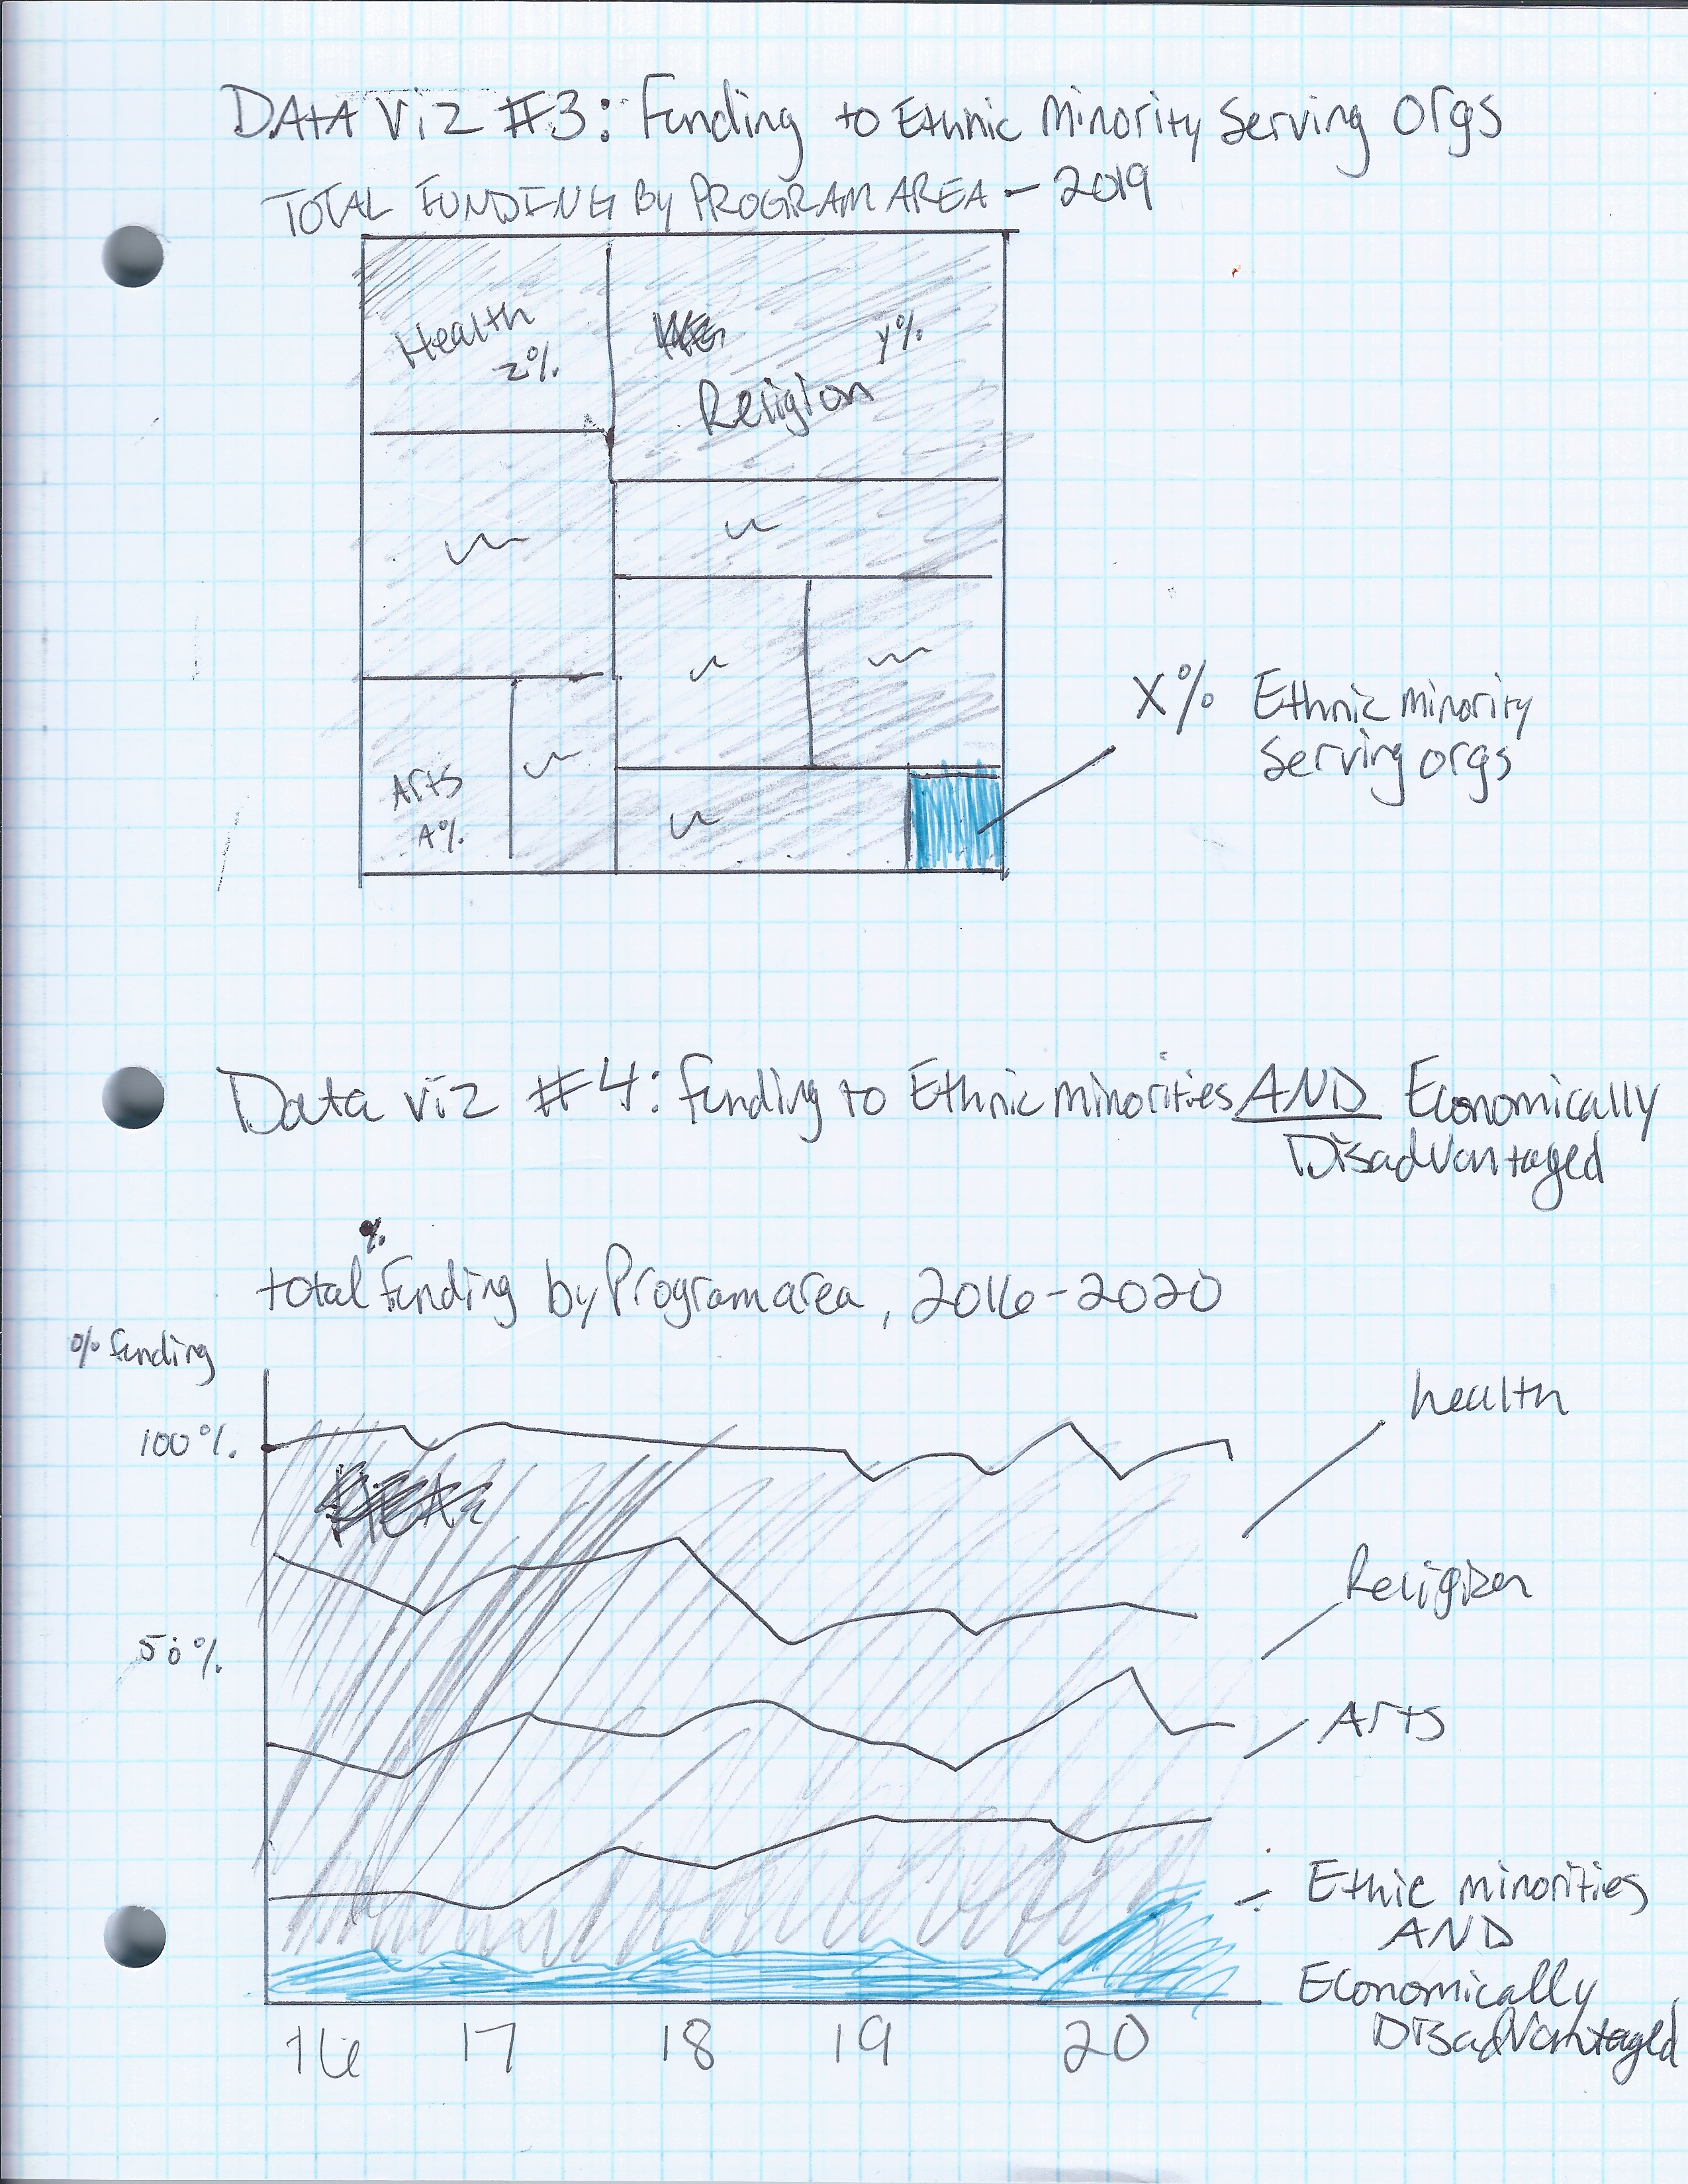 DATA Viz #3: Funding to Ethnic Minority Serving Orgs
TOTAL FUNDING By PROGRAM AREA - 2019
Health
z%
y%
Religion
Arts
A%
X% Ethnic minority
Serving orgs
Data viz #4: funding to Ethnic minorities AND Economically
Disadvantaged
%
total funding by Program area, 2016-2020
% funding
100%
50%
health
Religion
Arts
Ethic minorities
AND
Economically
Disadvantaged
16 17 18 19 20